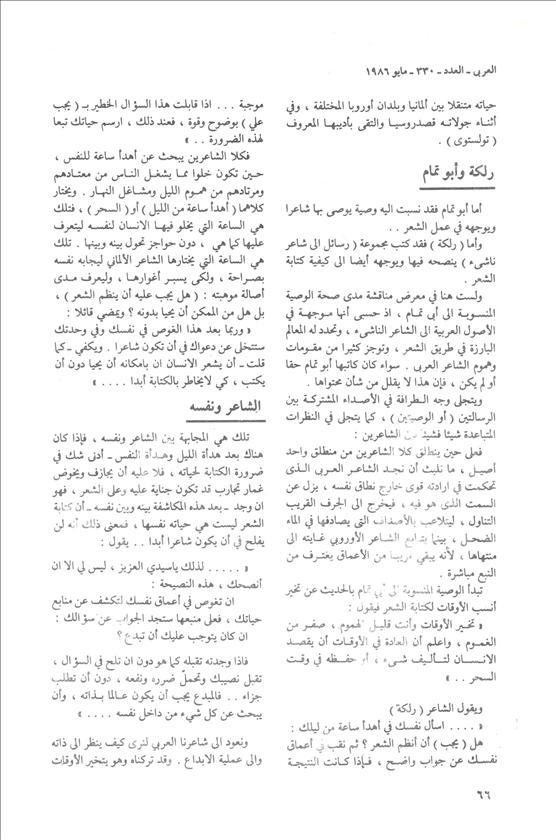 العربي - العدد - ٣٣٠ - مايو ١٩٨٦
حياته متنقلا بين ألمانيا وبلدان أوروبا المختلفة ، وفي
أثناء جولاته قصد روسيا والتقى بأديبها المعروف
( تولستوي ) .
رلكة وأبو تمام
أما أبو تمام فقد نسبت اليه وصية يوصى بها شاعرا
ويوجهه في عمل الشعر . .
وأما ( رلكة ) فقد كتب مجموعة ( رسائل الى شاعر
ناشىء ) ينصحه فيها ويوجهه أيضا الى كيفية كتابة
الشعر .
ولست هنا في معرض مناقشة مدى صحة الوصية
المنسوبة الى أبي تمام ، اذ حسبى أنها موجهة في
الأصول العربية الى الشاعر الناشىء ، وتحدد له المعالم
البارزة في طريق الشعر ، وتوجز كثيرا من مقومات
وهموم الشاعر العربي . سواء كان كاتبها أبو تمام حقا
أو لم يكن ، فإن هذا لا يقلل من شأن محتواها .
ويتجلى وجه الطرافة في الأصداء المشتركة بين
الرسالتين ( أو الوصيتين ) ، كما يتجلى في النظرات
المتباعدة شيئا فشيئا بين الشاعرين :
فعلى حين ينطلق كلا الشاعرين من منطلق واحد
أصيل ، ما نلبث أن نجد الشاعر العربى الذى
تحكمت في ارادته قوى خارج نطاق نفسه ، يزل عن
السمت الذى هو فيه ، فيخرج الى الجرف القريب
التناول ، ليتلاعب بالأصداف التى يصادفها في الماء
الضحل ، بينما يتابع الشاعر الأوروبي غايته الى
منتهاها ، لأنه يبقي قريبا من الأعماق يغترف من
النبع مباشرة .
تبدأ الوصية المنسوبة الى أبي تمام بالحديث عن تخير
أنسب الأوقات لكتابة الشعر فيقول :
« تخير الأوقات وأنت قليل الهموم ، صفر من
الغموم ، واعلم أن العادة في الأوقات أن يقصد
الانسان لتأليف شىء ، أو حفظه في وقت
السحر . . »
ويقول الشاعر ( رلكة )
« . . . . اسأل نفسك في أهدأ ساعة من ليلك :
هل ( يجب ) أن أنظم الشعر ؟ ثم نقب في أعماق
نفسك عن جواب واضح ، فإذا كانت النتيجة
موجبة . . . اذا قابلت هذا السؤال الخطير بـ ( يجب
علي ) بوضوح وقوة ، فعند ذلك ، ارسم حياتك تبعا
لهذه الضرورة . . »
فكلا الشاعرين يبحث عن أهدأ ساعة للنفس ،
حين تكون خلوا مما يشغل الناس من معتادهم
ومرتادهم من هموم الليل ومشاغل النهار . ويختار
كلاهما ( أهدأ ساعة من الليل ) أو ( السحر ) ، فتلك
هي الساعة التي يخلو فيها الانسان لنفسه ليتعرف
عليها كما هي ، دون حواجز تحول بينه وبينها . تلك
هي الساعة التي يختارها الشاعر الألماني ليجابه نفسه
بصراحة ، ولكى يسبر أغوارها ، وليعرف مدى
أصالة موهبته : ( هل يجب عليه أن ينظم الشعر ) ،
بل هل من الممكن أن يحيا بدونه ؟ ويمضي قائلا :
« وربما بعد هذا الغوص في نفسك وفي وحدتك
ستتخلى عن دعواك في أن تكون شاعرا . ويكفي - كما
قلت - أن يشعر الانسان ان بامكانه أن يحيا دون أن
يكتب ، كي لا يخاطر بالكتابة أبدا . . . . »
الشاعر ونفسه
تلك هي المجابهة بين الشاعر ونفسه ، فإذا كان
هناك بعد هدأة الليل وهدأة النفس - أدنى شك في
ضرورة الكتابة لحياته ، فلا عليه أن يجازف ويخوض
غمار تجارب قد تكون جناية عليه وعلى الشعر ، فهو
ان وجد - بعد هذه المكاشفة بينه وبين نفسه - أن كتابة
الشعر ليست هي حياته نفسها ، فمعنى ذلك أنه لن
يفلح في أن يكون شاعرا أبدا . . يقول :
« . . . . . لذلك ياسيدي العزيز ، ليس لي الا ان
أنصحك ، هذه النصيحة :
ان تغوص في أعماق نفسك لتكشف عن منابع
حياتك ، فعلى منبعها ستجد الجواب عن سؤالك :
ان كان يتوجب عليك أن تبدع ؟
فاذا وجدته تقبله كما هو دون ان تلح في السؤال ،
تقبل نصيبك وتحمل ضرره ونفعه ، دون أن تطلب
جزاء . . فالمبدع يجب أن يكون عالما بذاته ، وأن
يبحث عن كل شيء من داخل نفسه . . . . »
ونعود الى شاعرنا العربي لنرى كيف ينظر الى ذاته
والى عملية الابداع . وقد تركناه وهو يتخير الأوقات
٦٦